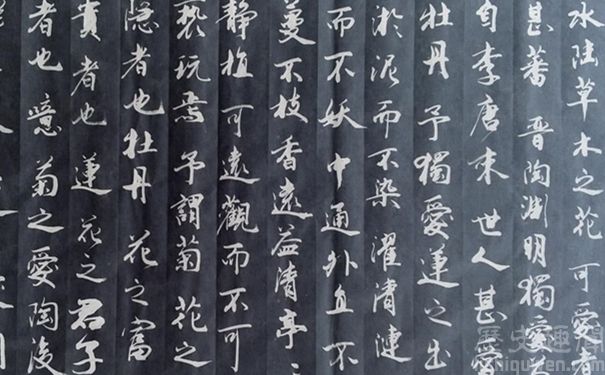 水陸草木之花可愛者
甚蕃晋陶渊明獨愛菊
自李唐末世人甚愛
牡丹予獨愛蓮之出
淤泥而不染濯清漣
而不妖中通外直不
蔓不枝香遠益清亭
静植可遠觀而不可
褻玩焉予謂菊花之
隐者也牡丹花之富
貴者也蓮花之君子
者也噫菊之愛陶後